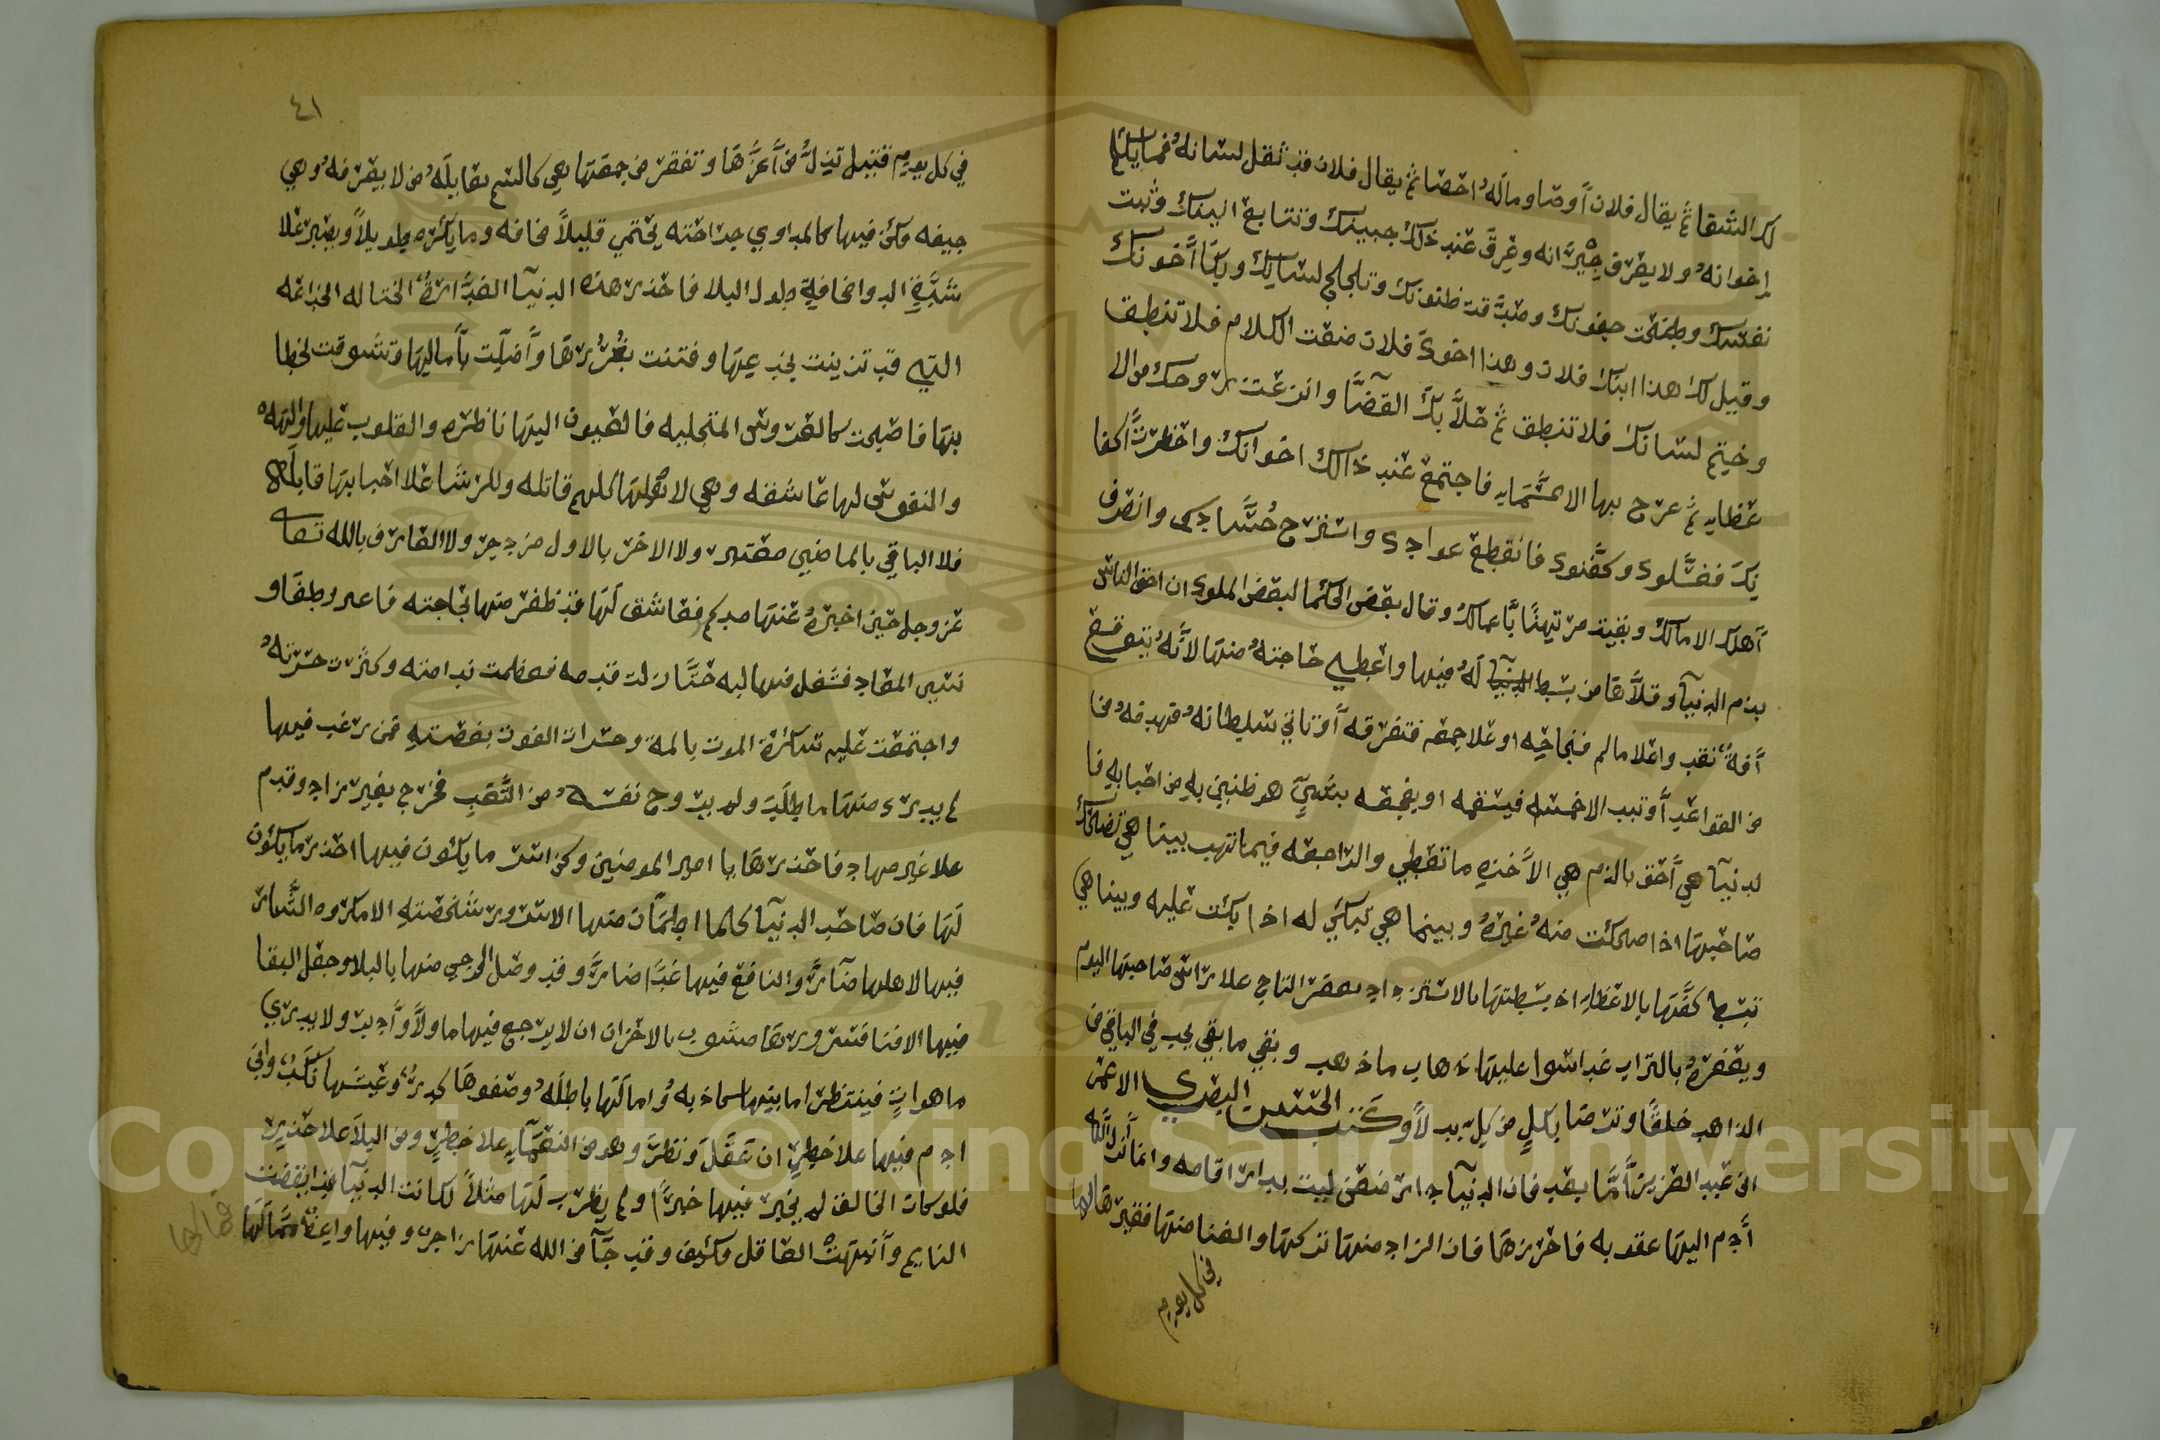 لك الشفا ثم يقال فلان أوصا وماله احصا ثم يقال فلان قد ثقل لسانه فما يكلم
إخوانه ولا يعرف جيرانه وعرق عند ذلك جبينك وتتابع انينك وثبت
نفسك وطمحت جفونك وصدقت ظنونك وتلجلج لسانك وبكا أخونك
وقيل لك هذا ابنك فلان وهذا اخوك فلان منعت الكلام فلا تنطق
وختم لسانك فلا تنطق ثم حلا بك القضا وانزعت روحك من الا
عظايه ثم عرج بها الا السمايه فاجتمع عند ذالك اخوانك واحظرت اكفا
نك فغسلوك وكفنوك فانقطع عوادك واستزح حسادك وانصرف
أهلك الا مالك وبقيت مرتهنا بأعمالك وقال بعض الحكما لبعض الملوك ان احق الناس
بذم الدنيا وقلاها من بسط الدنيا له فيها واعطي حاجته منها لأنه يتوقع
أفة تعد واعلا ماله فتجاحه او علا جمعه فتفرقه أو تاتي سلطانه فتهدفه من
من القواعد أو تدب الا جسمه فيسقمه او يفجعه بشي هو ظنين به من احبابه فا
لدنيا هي أحق بالذم هي الأخذه ما تعطي والراجعه فيما تهب بينا هي تضحك
صاحبها اذا ضحكت منه غيره وبينما هي تبكي له اذا بكت عليه وبينا هي
تبسط كفها بالاعطا اذ بسطتها بالاسترداد تعقد التاج علا راس صاحبها اليوم
ويعفره بالتراب غدا سوا عليها ذهاب ما ذهب وبقي ما بقي يجب في الباقي من
الذاهب خلفا وترضا بكل من كل بدلا وكتب الحسن البصري الا عمر
ابن عبد العزيز أما بعد فان الدنيا دار ضعن ليت بدار اقامه وانما أنزل الله
أدم اليها عقوبه فاحذرها فان الزاد منها تركها والغنا منها فقرها لها
في كل يوم
٤١
في كل يوم قتيل تذل من أعزها وتفقر من جمعها هي كالسم يقابله من لا يعرفه وهي
جيفه وكن فيها كالمداوي جراحته يحتمي قليلا مخافه وما يكره طويلا ويصبر علا
شدة الدوا مخافة طول البلا فاحذر هذه الدنيا الغدارة الختاله الخداعه
التي قد تزينت بخدعها وفتنت بغرورها وأضلت بأماليها وتشوقت لخطا
بها فاصبحت كالعروس المتجليه فالعيون اليها ناظره والقلوب عليها والهه
والنفوس لها عاشقه وهي لا كلهم قاتله وللرشا علا احبابها قابله
فلا الباقي بالماضي معتبر ولا الاخر بالاول مزدجر ولا العارف بالله تعا
عز وجل حين اخبره عنها مدكر فعاشق لها قد ظفر منها بحاجته فاعتر وطغا و
نسي المعاد فشغل فيها لبه حتا زلت قدمه فعظمت ندامته وكثرت حسرته
واجتمعت عليه سكرة الموت بالمه وحسرات الفوت بغصته فمن رغب فيها
لم يدرك منها ما طلب ولم يروح نفسه من التعب فخرج بغير زاد وقدم
علا غير مهاد فاحذرها يا امير المومنين وكن اسر ما يكون فيها احذر ما يكون
لها فان صاحب الدنيا كلما اطمأن منها الا سرور شخصته الا مكروه السار
فيها لاهلها ضار والنافع فيها غدا ضار وقد وصل الرجي منها بالبلا وجعل البقا
فيها الا فنا فسرورها مشوب بالاحزان ان لا يرجع فيها ما ولا وأدبر ولا يدري
ما هوات فينتظر امانيها كاذبه وامالها باطله وصفوها كدر وعيشها نكد وابن
ادم فيها علا خطر ان عقل ونظر وهو من النعمايه علا خطر ومن البلا علا حذر
فلو كان الخالق لم يخبر فيها خبرا ولم يظرب لها مثلا لكانت الدنيا قد ايقضت
النايم وأنبهت الغافل فكيف وقد جا من الله عنها زاجر وفيها واعظ فما لها
فما لها
Copyright © King Saud University